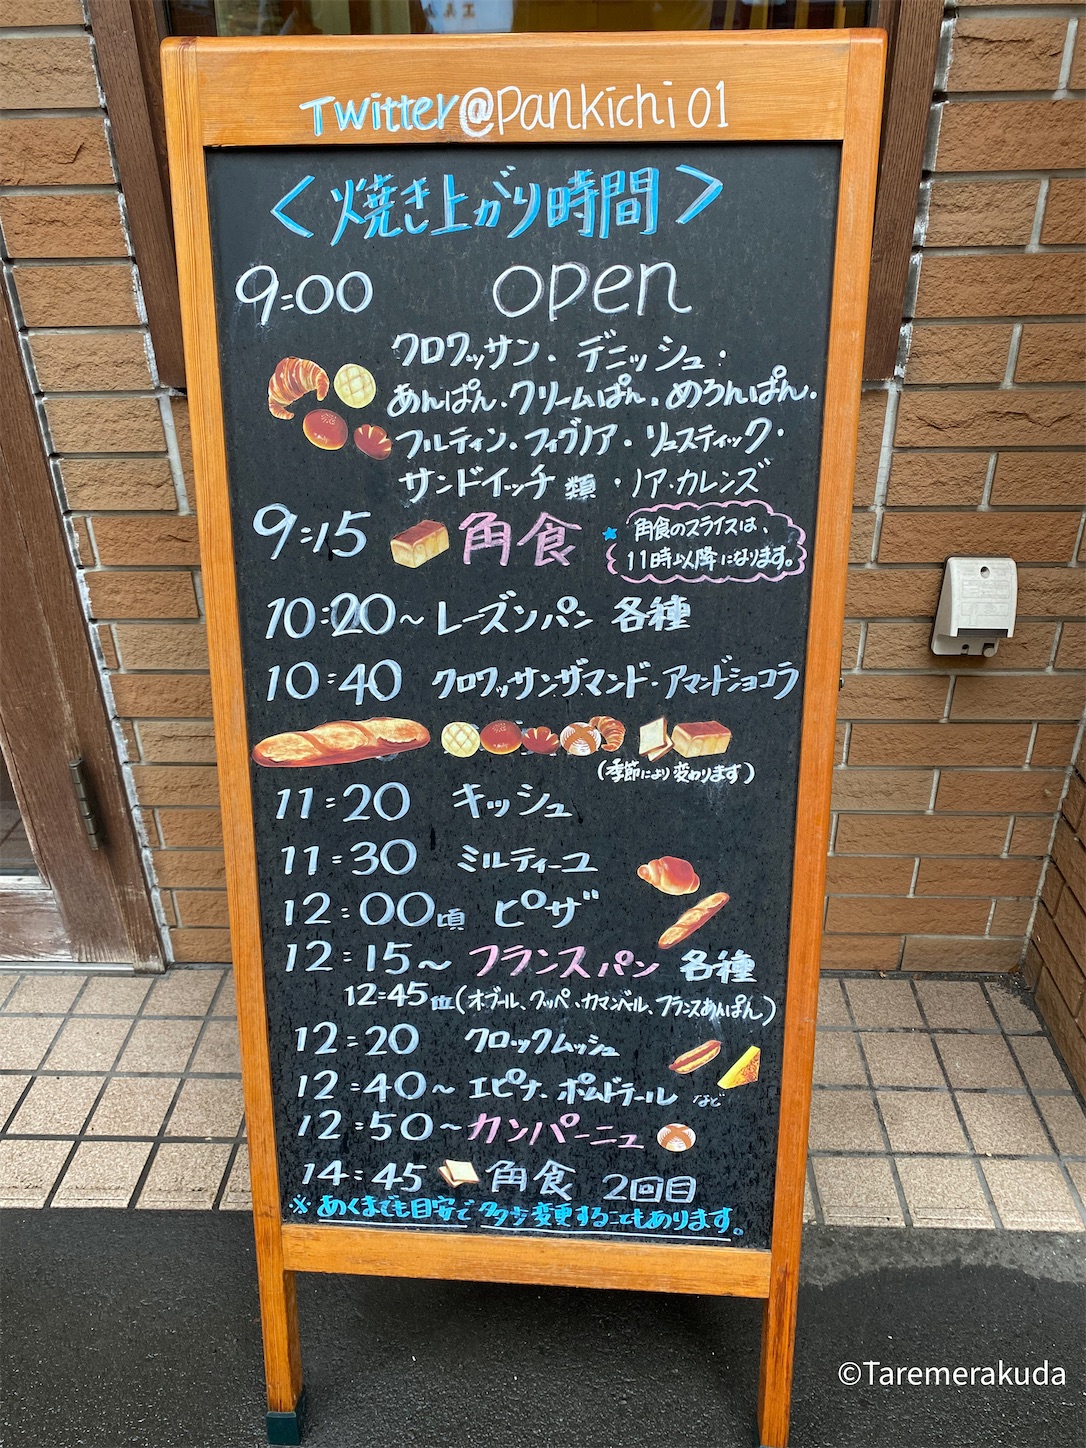 Twitter@Pankichi01
＜焼き上がり時間＞
9:00 open
クロワッサン・デニッシュ・
あんぱん・クリームぱん・めろんぱん・
フルティン・フィグノア・リュスティック・
サンドイッチ類・ノア・カレンズ
9:15 角食
角食のスライスは、
11時以降になります。
10:20～レーズンパン 各種
10:40 クロワッサンザマンド・アマンドショコラ
(季節により変わります)
11:20 キッシュ
11:30 ミルティーユ
12:00頃 ピザ
12:15～フランスパン 各種
12:45位(オブール、クッペ、カマンベール、フランスあんぱん)
12:20 クロックムッシュ
12:40～エピナ、ポムドテール など
12:50～カンパーニュ
14:45 角食 2回目
※あくまでも目安で多少変更することもあります。
©Taremerakuda